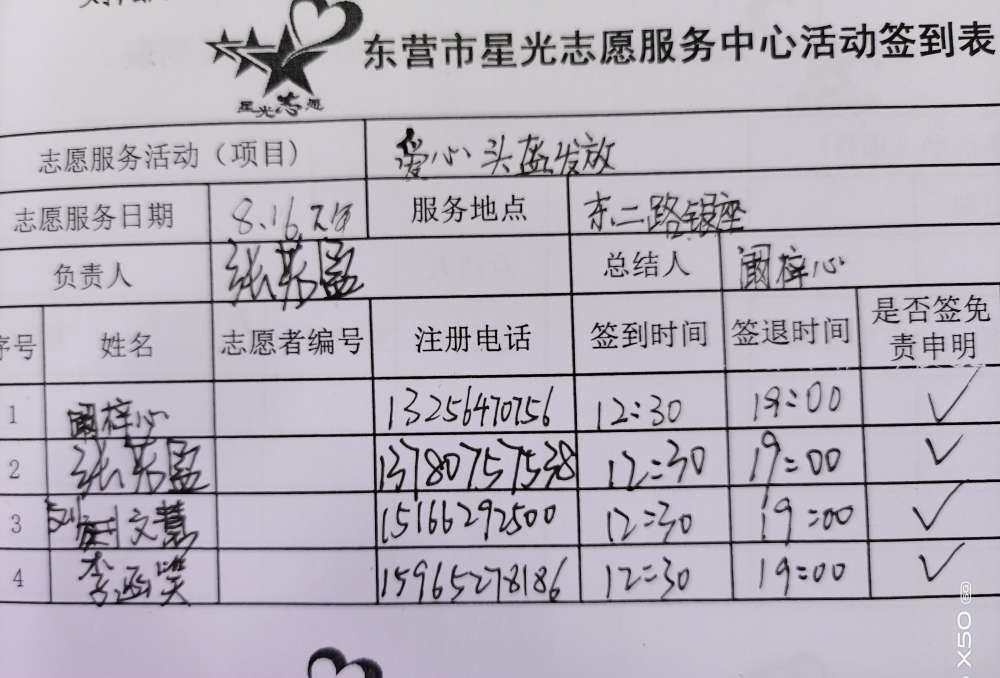 东营市星光志愿服务中心活动签到表
星光志愿
志愿服务活动（项目） 爱心头盔发放
志愿服务日期 8.16 服务地点 东二路银座
负责人 张 盈 总结人 阚梓心
序号 姓名 志愿者编号 注册电话 签到时间 签退时间 是否签免责申明
1 阚梓心 13256470756 12:30 19:00 ✓
2 张 盈 13780757538 12:30 19:00 ✓
3 文慧 15166292500 12:30 19:00 ✓
4 李函笑 15965278186 12:30 19:00 ✓
X50